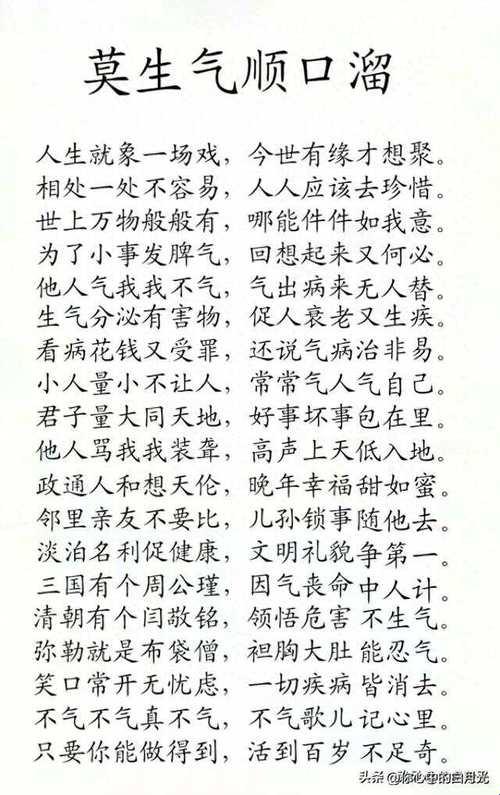 莫生气顺口溜
人生就象一场戏，今世有缘才想聚。
相处一处不容易，人人应该去珍惜。
世上万物般般有，哪能件件如我意。
为了小事发脾气，回想起来又何必。
他人气我我不气，气出病来无人替。
生气分泌有害物，促人衰老又生疾。
看病花钱又受罪，还说气病治非易。
小人量小不让人，常常气人气自己。
君子量大同天地，好事坏事包在里。
他人骂我我装聋，高声上天低入地。
政通人和想天伦，晚年幸福甜如蜜。
邻里亲友不要比，儿孙锁事随他去。
淡泊名利促健康，文明礼貌争第一。
三国有个周公瑾，因气丧命中人计。
清朝有个闫敬铭，领悟危害不生气。
弥勒就是布袋僧，袒胸大肚能忍气。
笑口常开无忧虑，一切疾病皆消去。
不气不气真不气，不气歌儿记心里。
只要你能做得到，活到百岁不足奇。
头条@你心中的白月光